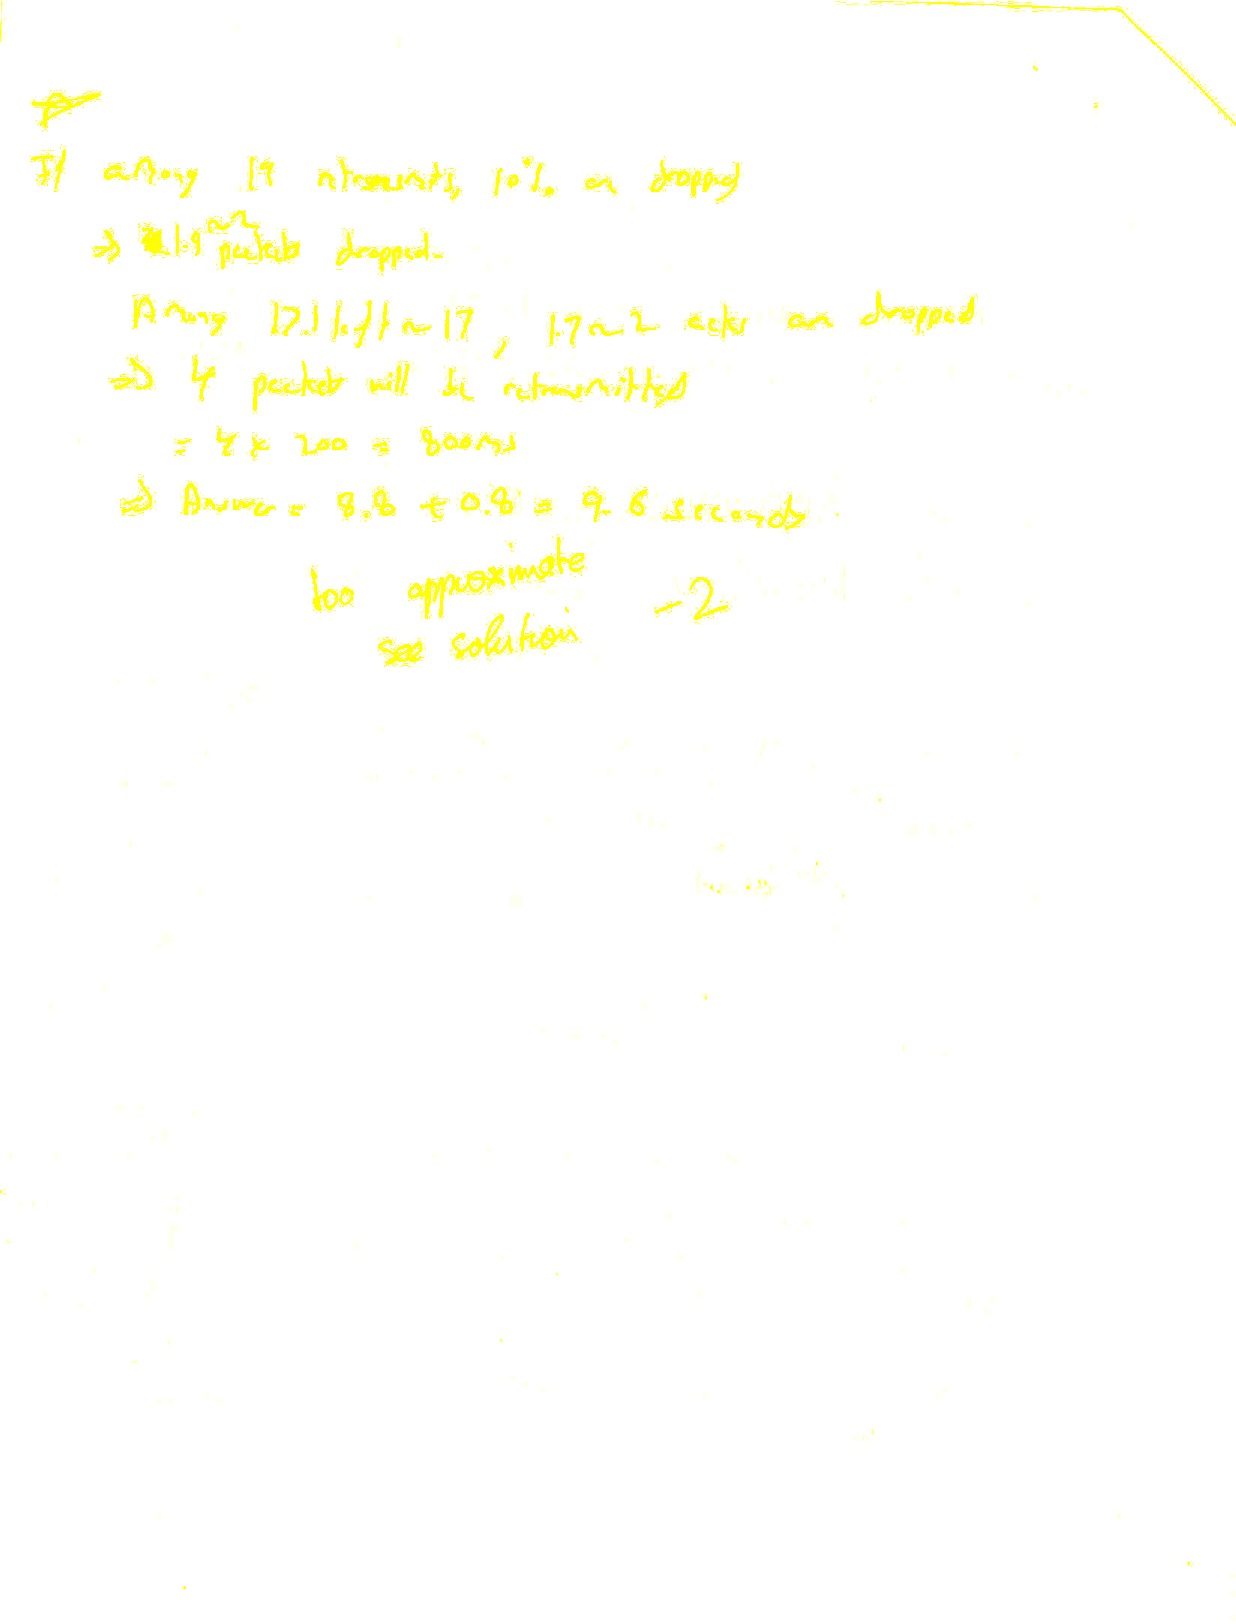 If among 19 retransmits, 10% are dropped
⇒ 1.9 ~2 packets dropped.
Among 17.1 left ~ 17, 1.7 ~ 2 acks are dropped
⇒ 4 packets will be retransmitted
= 4 × 200 = 800ms
⇒ Answer = 8.8 + 0.8 = 9.6 seconds
too approximate -2
see solution